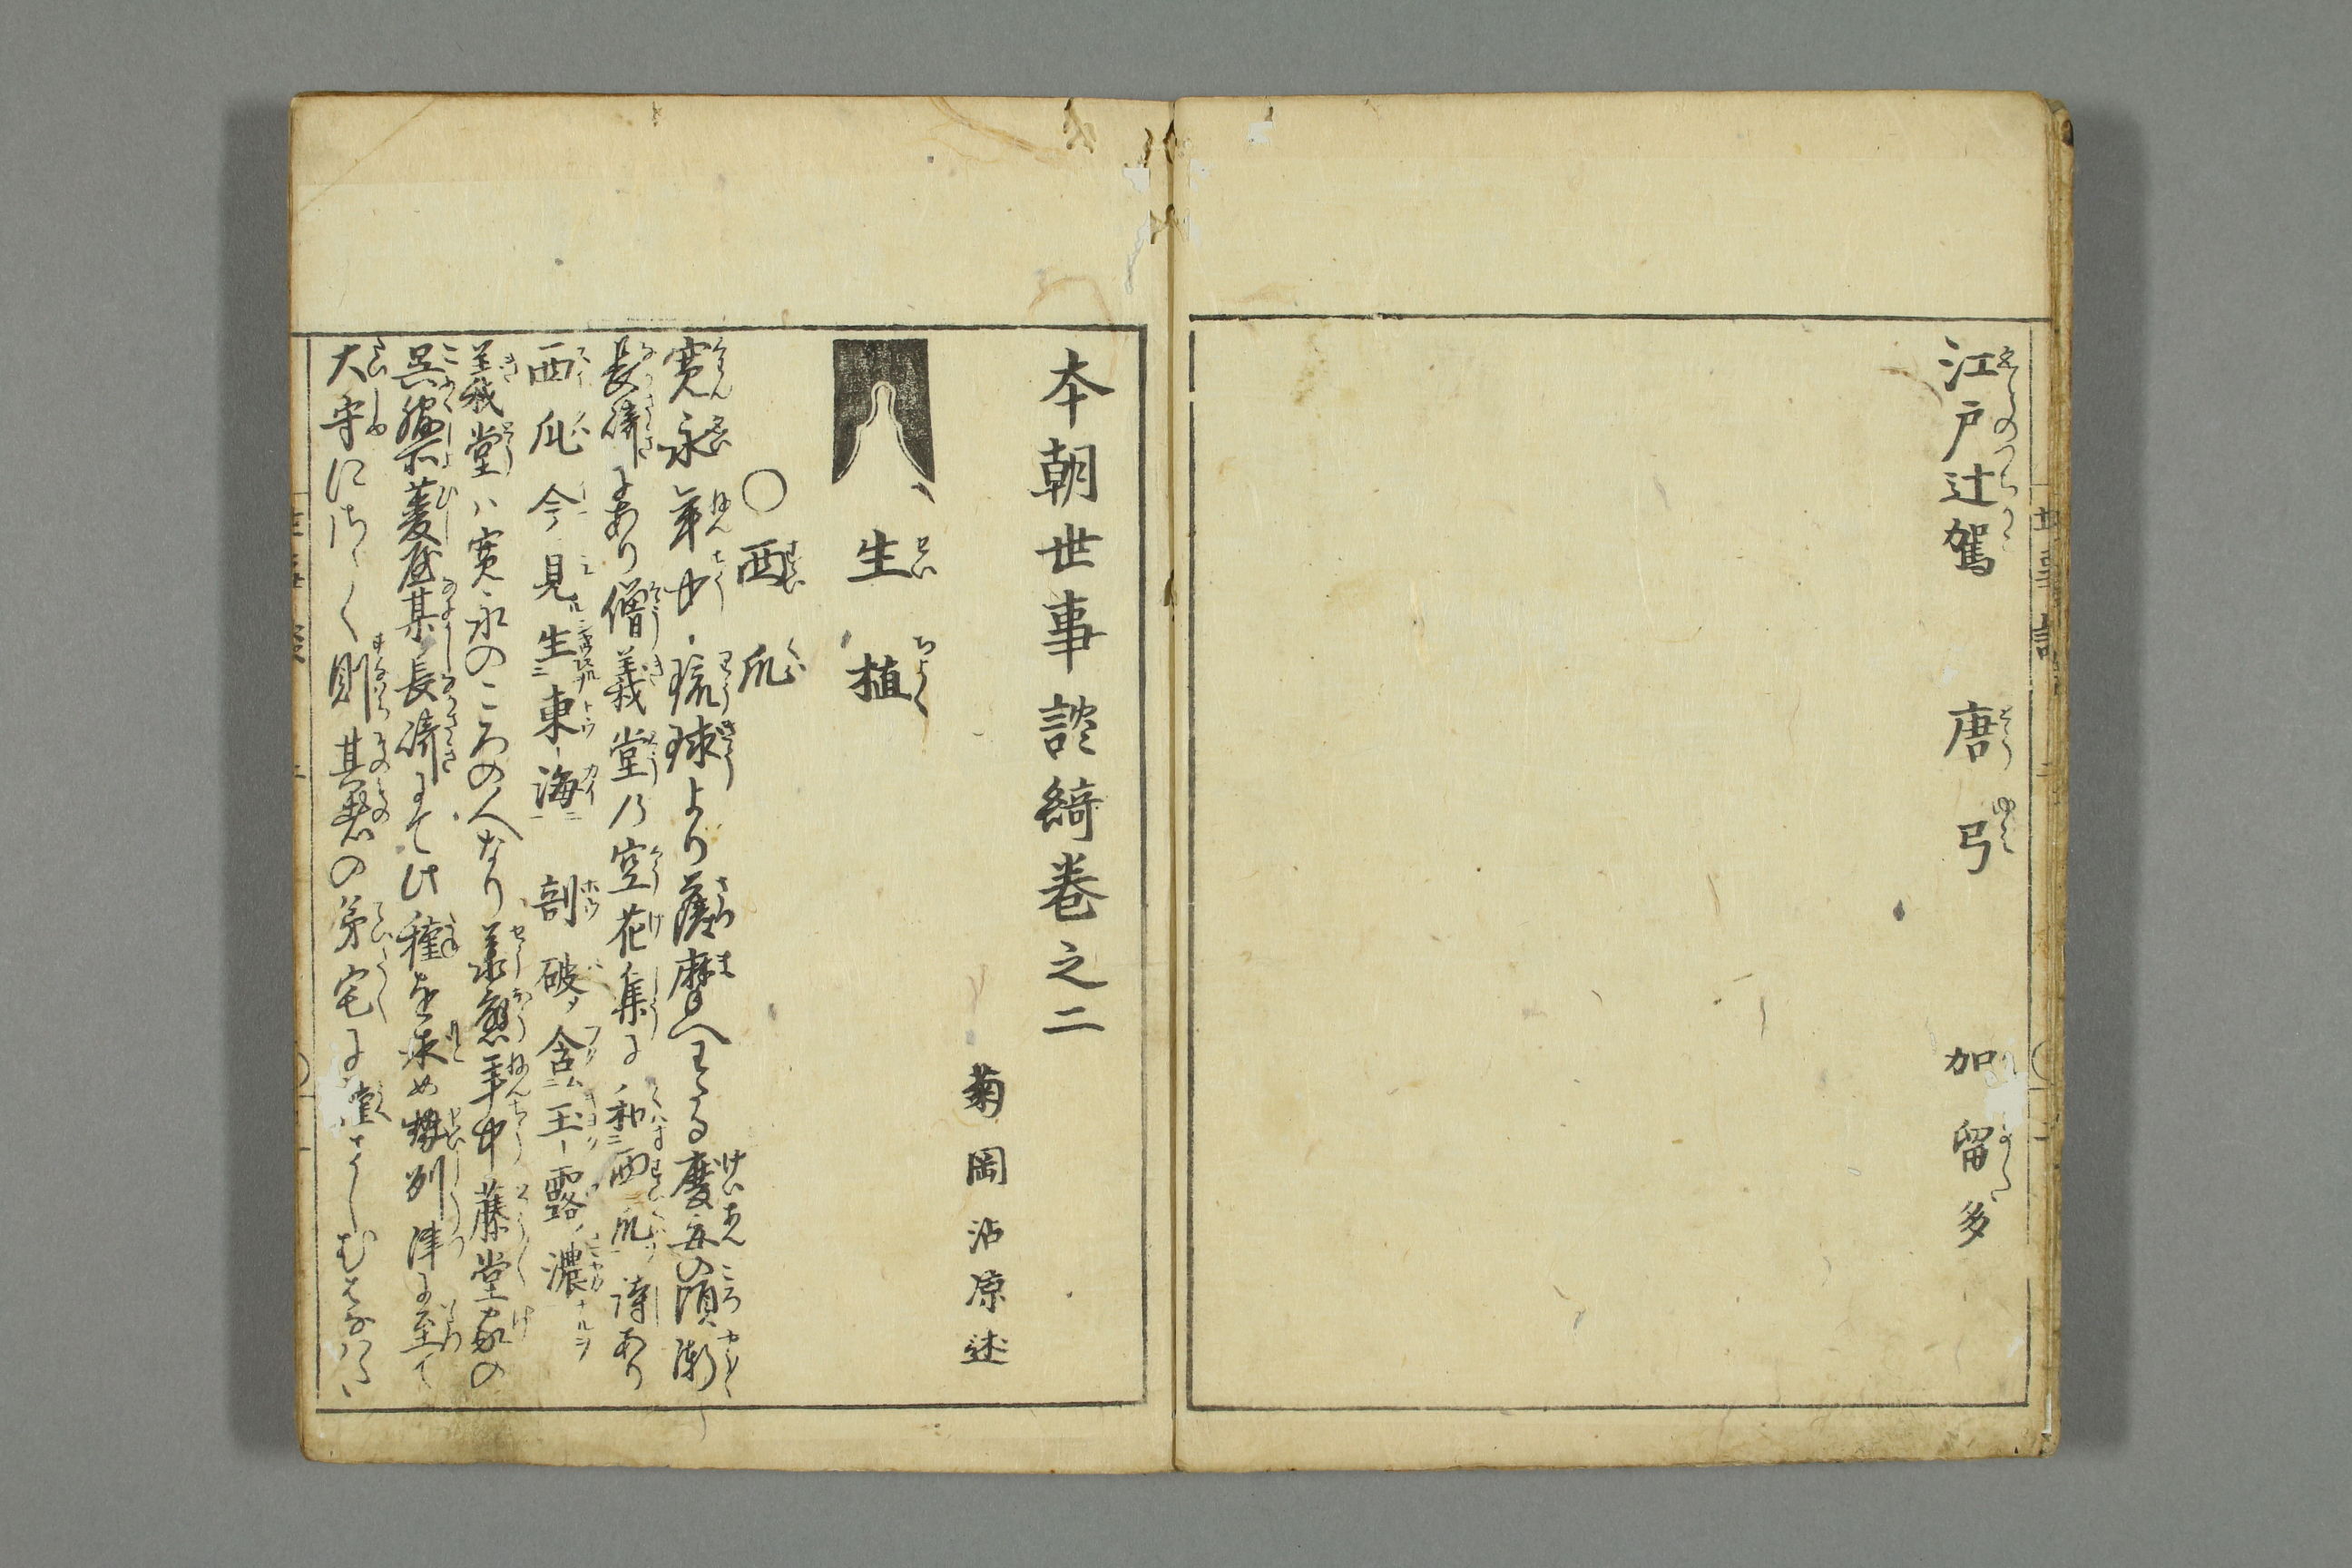 江戸辻駕　唐弓　加留多
本朝世事談綺巻之二
菊岡沾凉述
生植
○西瓜
寛永年中琉球より薩广へわたる慶安の頃漸
長崎にあり僧義堂乃空花集に和西瓜詩あり
西瓜今見生東海剖破含玉露濃
義堂ハ寛永のころの人なり承應年中藤堂家の
呉服所菱屋某長崎にて此種を求め勢州津に至て
大守にさゝく則其㐂の第宅に